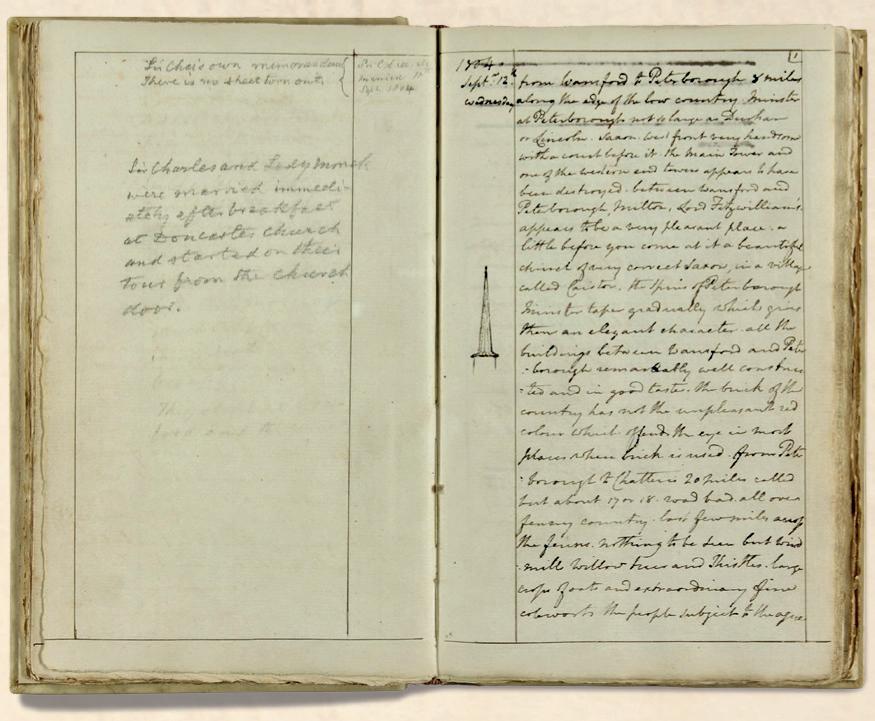 Sir Cha's own memorandum
There is no sheet torn out.
Sir C. &
married 11th
Sept. 1804.
Sir Charles and Lady Monck
were married immedi-
ately after breakfast
at Doncaster Church
and started on their
tour from the Church
door.
1
1804
Sept.r 12.th
Wednesday
from Wansford to Peterborough 8 miles
along the edge of the low country. Minster
at Peterborough not so large as Durham
or Lincoln. Saxon. west front very handsome
with a court before it. the Main Tower and
one of the western end towers appears to have
been destroyed. between Wansford and
Peterborough, Milton, Lord Fitzwilliam's
appears to be a very pleasant place. a
little before you come at it a beautiful
church of very correct Saxon, in a village
called Caistor. the Spires of Peterborough
Minster taper gradually which gives
them an elegant character. all the
buildings between Wansford and Peter
-borough remarkably well construc
-ted and in good taste. the brick of the
country has not the unpleasant red
colour which offends the eye in most
places where brick is used. from Peter
-borough to Chatteris 20 miles called
but about 17 or 18. road bad. all over
fenny country. last few miles across
the fenns. nothing to be seen but wind
-mill willow trees and Thistles. large
crops of oats and extraordinary fine
coleworts the people subject to the ague